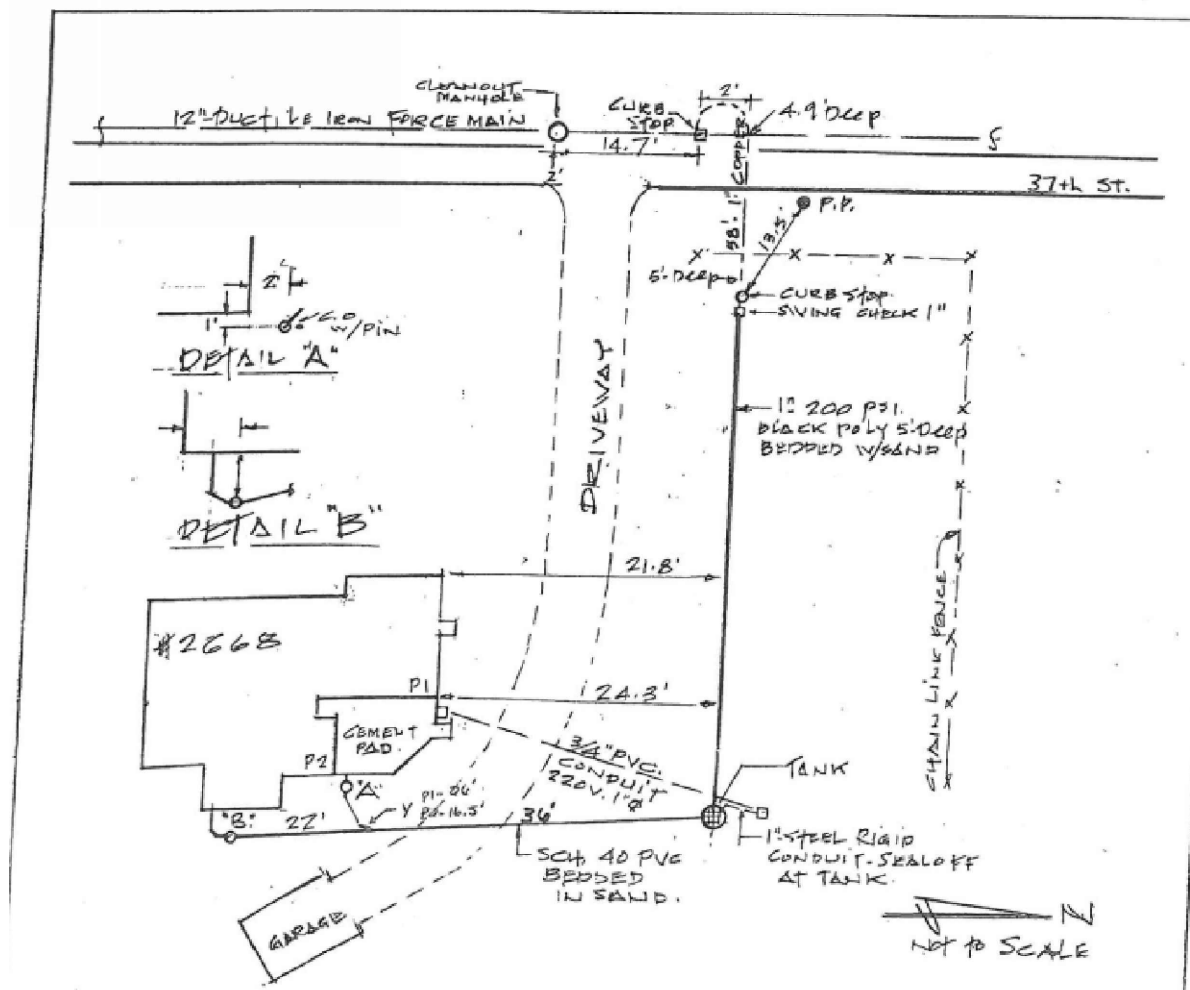 CLEANOUT
MANHOLE
12" DUCTILE IRON FORCE MAIN
CURB
STOP
2'
4.9' Deep
14.7'
2'
58'. 1" COPPER
37th ST.
P.P.
13.5'
5' Deep
CURB STOP
SWING CHECK 1"
2'
1'
C.O
W/PIN
DETAIL "A"
DETAIL "B"
DRIVEWAY
1" 200 PSI.
BLACK POLY 5' Deep
BEDDED W/SAND
CHAIN LINK FENCE
21.8'
#2668
P1
24.3'
CEMENT
PAD.
P2
3/4" PVC.
CONDUIT
220V. 1 Ø
TANK
"A"
Y
P2-16.5'
"B"
22'
36'
SCH. 40 PVC
BEDDED
IN SAND.
1" STEEL RIGID
CONDUIT-SEALOFF
AT TANK.
GARAGE
N
NOT TO SCALE